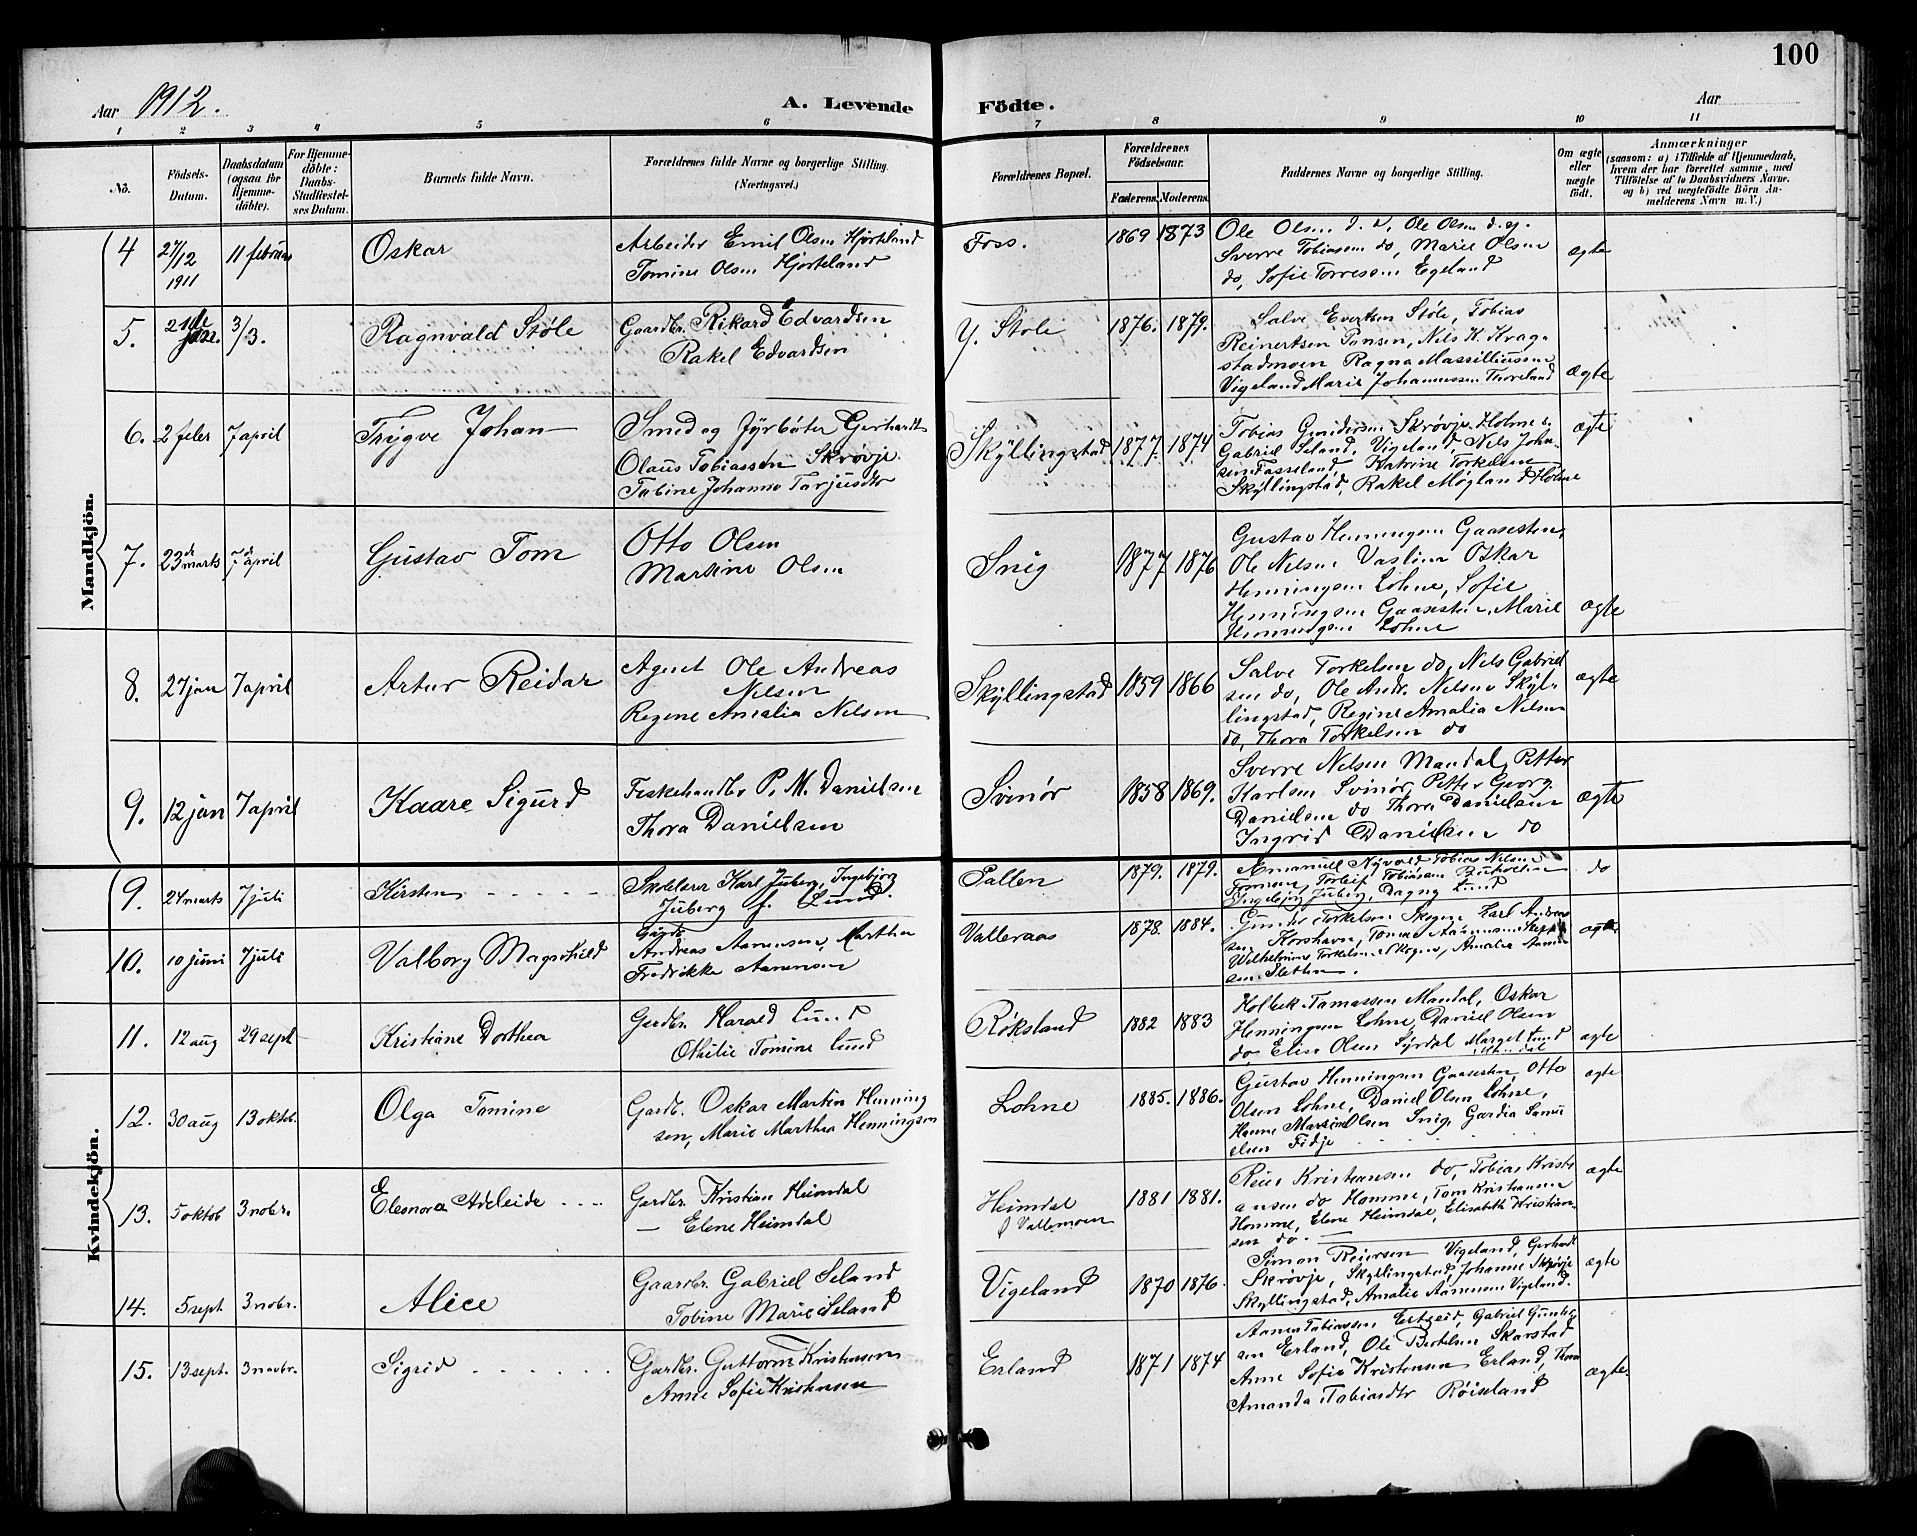 100
Aar 1912.
A. Levende Födte.
Aar
1 2 3 4 5 6 7 8 9 10 11
No.
Födsels-
Datum.
Daabsdatum
(ogsaa for
Hjemme-
döbte).
For Hjemme-
döbte:
Daabs-
Stadfæstel-
ses Datum.
Barnets fulde Navn.
Forældrenes fulde Navne og borgerlige Stilling.
(Næringsvei.)
Forældrenes Bopæl.
Forældrenes
Födselsaar.
Faderens. Moderens.
Faddernes Navne og borgerlige Stilling.
Om ægte
eller
uægte
födt.
Anmærkninger
(saasom: a) i Tilfælde af Hjemmedaab,
hvem der har forrettet samme, med
Tilföielse af to Daabsvidners Navne,
og b) ved uegtefödte Börn An-
melderens Navn m. V.)
Mandkjön.
4
27/12
1911
11 februar
Oskar
Arbeider Emil Olsen Hjorteland
Tomine Olsen Hjorteland
Foss.
1869 1873
Ole Olsen
Ole Olsen
Sverre Tobiasen do, Marie Olsen
do, Sofie Torresen Egeland
ægte
5.
21de
jan.
3/3.
Ragnvald Støle
Gaardbr. Rikard Edvardsen
Rakel Edvardsen
Y. Støle
1876. 1879.
Salve Evertsen Støle, Tobias
Reinertsen Nils H. Krag-
stadmoen Ragna Massiliusen
Vigeland Marie Johannessen Thoreland
ægte
6.
2 feber
7 april
Trygve Johan
Smed og Fyrbøter Gerhardt
Olaus Tobiassen Skrøvje
Tobine Johanne Tarjusdtr
Skyllingstad
1877 1874
Tobias Gundersen Skrøvje Holme
Gabriel Seland, Vigeland, Nils Johan-
sen Fasseland, Katrine Torkelsen
Skyllingstad, Rakel Møgland Holme
ægte
7.
23de marts
7de april
Gustav Tom
Otto Olsen
Martine Olsen
Snig
1877 1876
Gustav Henningsen Gaaseston,
Ole Nilsen Oskar
Henningsen Lohne, Sofie
Henningsen Marie
Henningsen Lohne
ægte
8.
27 jan
7 april
Artur Reidar
Agent Ole Andreas
Nilsen
Regine Amalia Nilsen
Skyllingstad
1859 1866
Salve Torkelsen do, Nils Gabriel-
sen do, Ole Andr. Nilsen Skyl-
lingstad, Regine Amalia Nilsen
do, Thora Torkelsen do
ægte
9.
12 jan
7 april
Kaare Sigurd
Fiskehandler P. M. Danielsen
Thora Danielsen
Svinør
1858 1869.
Sverre Nilsen Mandal, Petter
Karlsen Svinør, Petter Georg
Danielsen do Thora Danielsen
Ingrid Danielsen do
ægte
Kvindekjön.
9.
24 marts
7 juli
Kirsten
Skolelærer Karl Juberg, Ingebjorg
Juberg f. Lund.
Sallen
1879. 1879.
Tobias Nilsen
Torleif Tobiasen
Ingebjorg Juberg, Dagny Lund
do
10.
10 juni
7 juli
Valborg Magnhild
Gårdb.
Andreas Aanensen, Martha
Fredrikke Aanensen
Valleraas
1878. 1884.
Gunder Torkelsen Skogen, Karl Andreas-
sen Korshavn, Tomas Aanensen
Wilhelmine Torkelsen Skogen, Amalia Aanen-
sen Sletten.
ægte
11.
12 aug
29 sept
Kristiane Dorthea
Gardbr. Harald Lund
Othilie Tomine Lund
Røksland
1882 1883
Holbek Tomassen Mandal, Oskar
Henningsen Lohne, Daniel Olsen
do Elise Olsen Syrdal Marget Lund
ægte
12.
30 aug
13 oktob.
Olga Tomine
Gardb. Oskar Martin Henning
sen, Marie Marthea Henningsen
Lohne
1885. 1886.
Gustav Henningsen Gaaseston, Otto
Olsen Lohne, Daniel Olsen Lohne,
Hanne Martine Olsen Snig, Gardia Samu
elsen Fidje
ægte
13.
5 oktob
3 nobr.
Eleonora Adeleide
Gardbr. Kristian Heimdal
— Elene Heimdal
Heimdal
Vallemoen
1881 1881.
Reier Kristiansen do, Tobias Kristi
ansen do Homme, Tom Kristiansen
Homme, Elene Heimdal, Elisabeth Kristian-
sen do.
ægte
14.
5 sept
3 nobr.
Alice
Gaardbr. Gabriel Seland
Tobine Marie Seland
Vigeland
1870 1876.
Simon Reiersen Vigeland, Gerhardt
Skrøvje, Skyllingstad, Johanne Skrøvje
Skyllingstad, Amalie Aanensen Vigeland.
ægte
15.
13 sept.
3 novbr.
Sigrid
Gardbr. Guttorm Kristensen
Anne Sofie Kristensen
Erland
1871 1874
Aanen Tobiassen Gabriel Gunder-
sen Erland, Ole Bertelsen Skarstad
Anne Sofie Kristensen Erland, Thora
Amanda Tobiasdtr Røiseland
ægte.